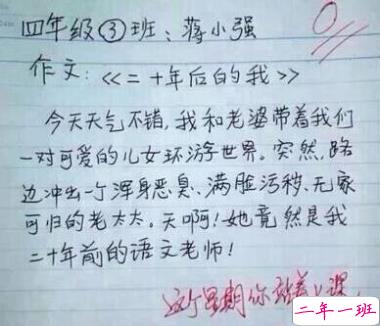 四年级③班：蒋小强
0
作文：<<二十年后的我>>
今天天气不错，我和老婆带着我们
一对可爱的儿女环游世界。突然，路
边冲出一个浑身恶臭、满脸污秽、无家
可归的老太太。天啊！她竟然是我
二十年前的语文老师！
这个星期你站着上课
二年一班